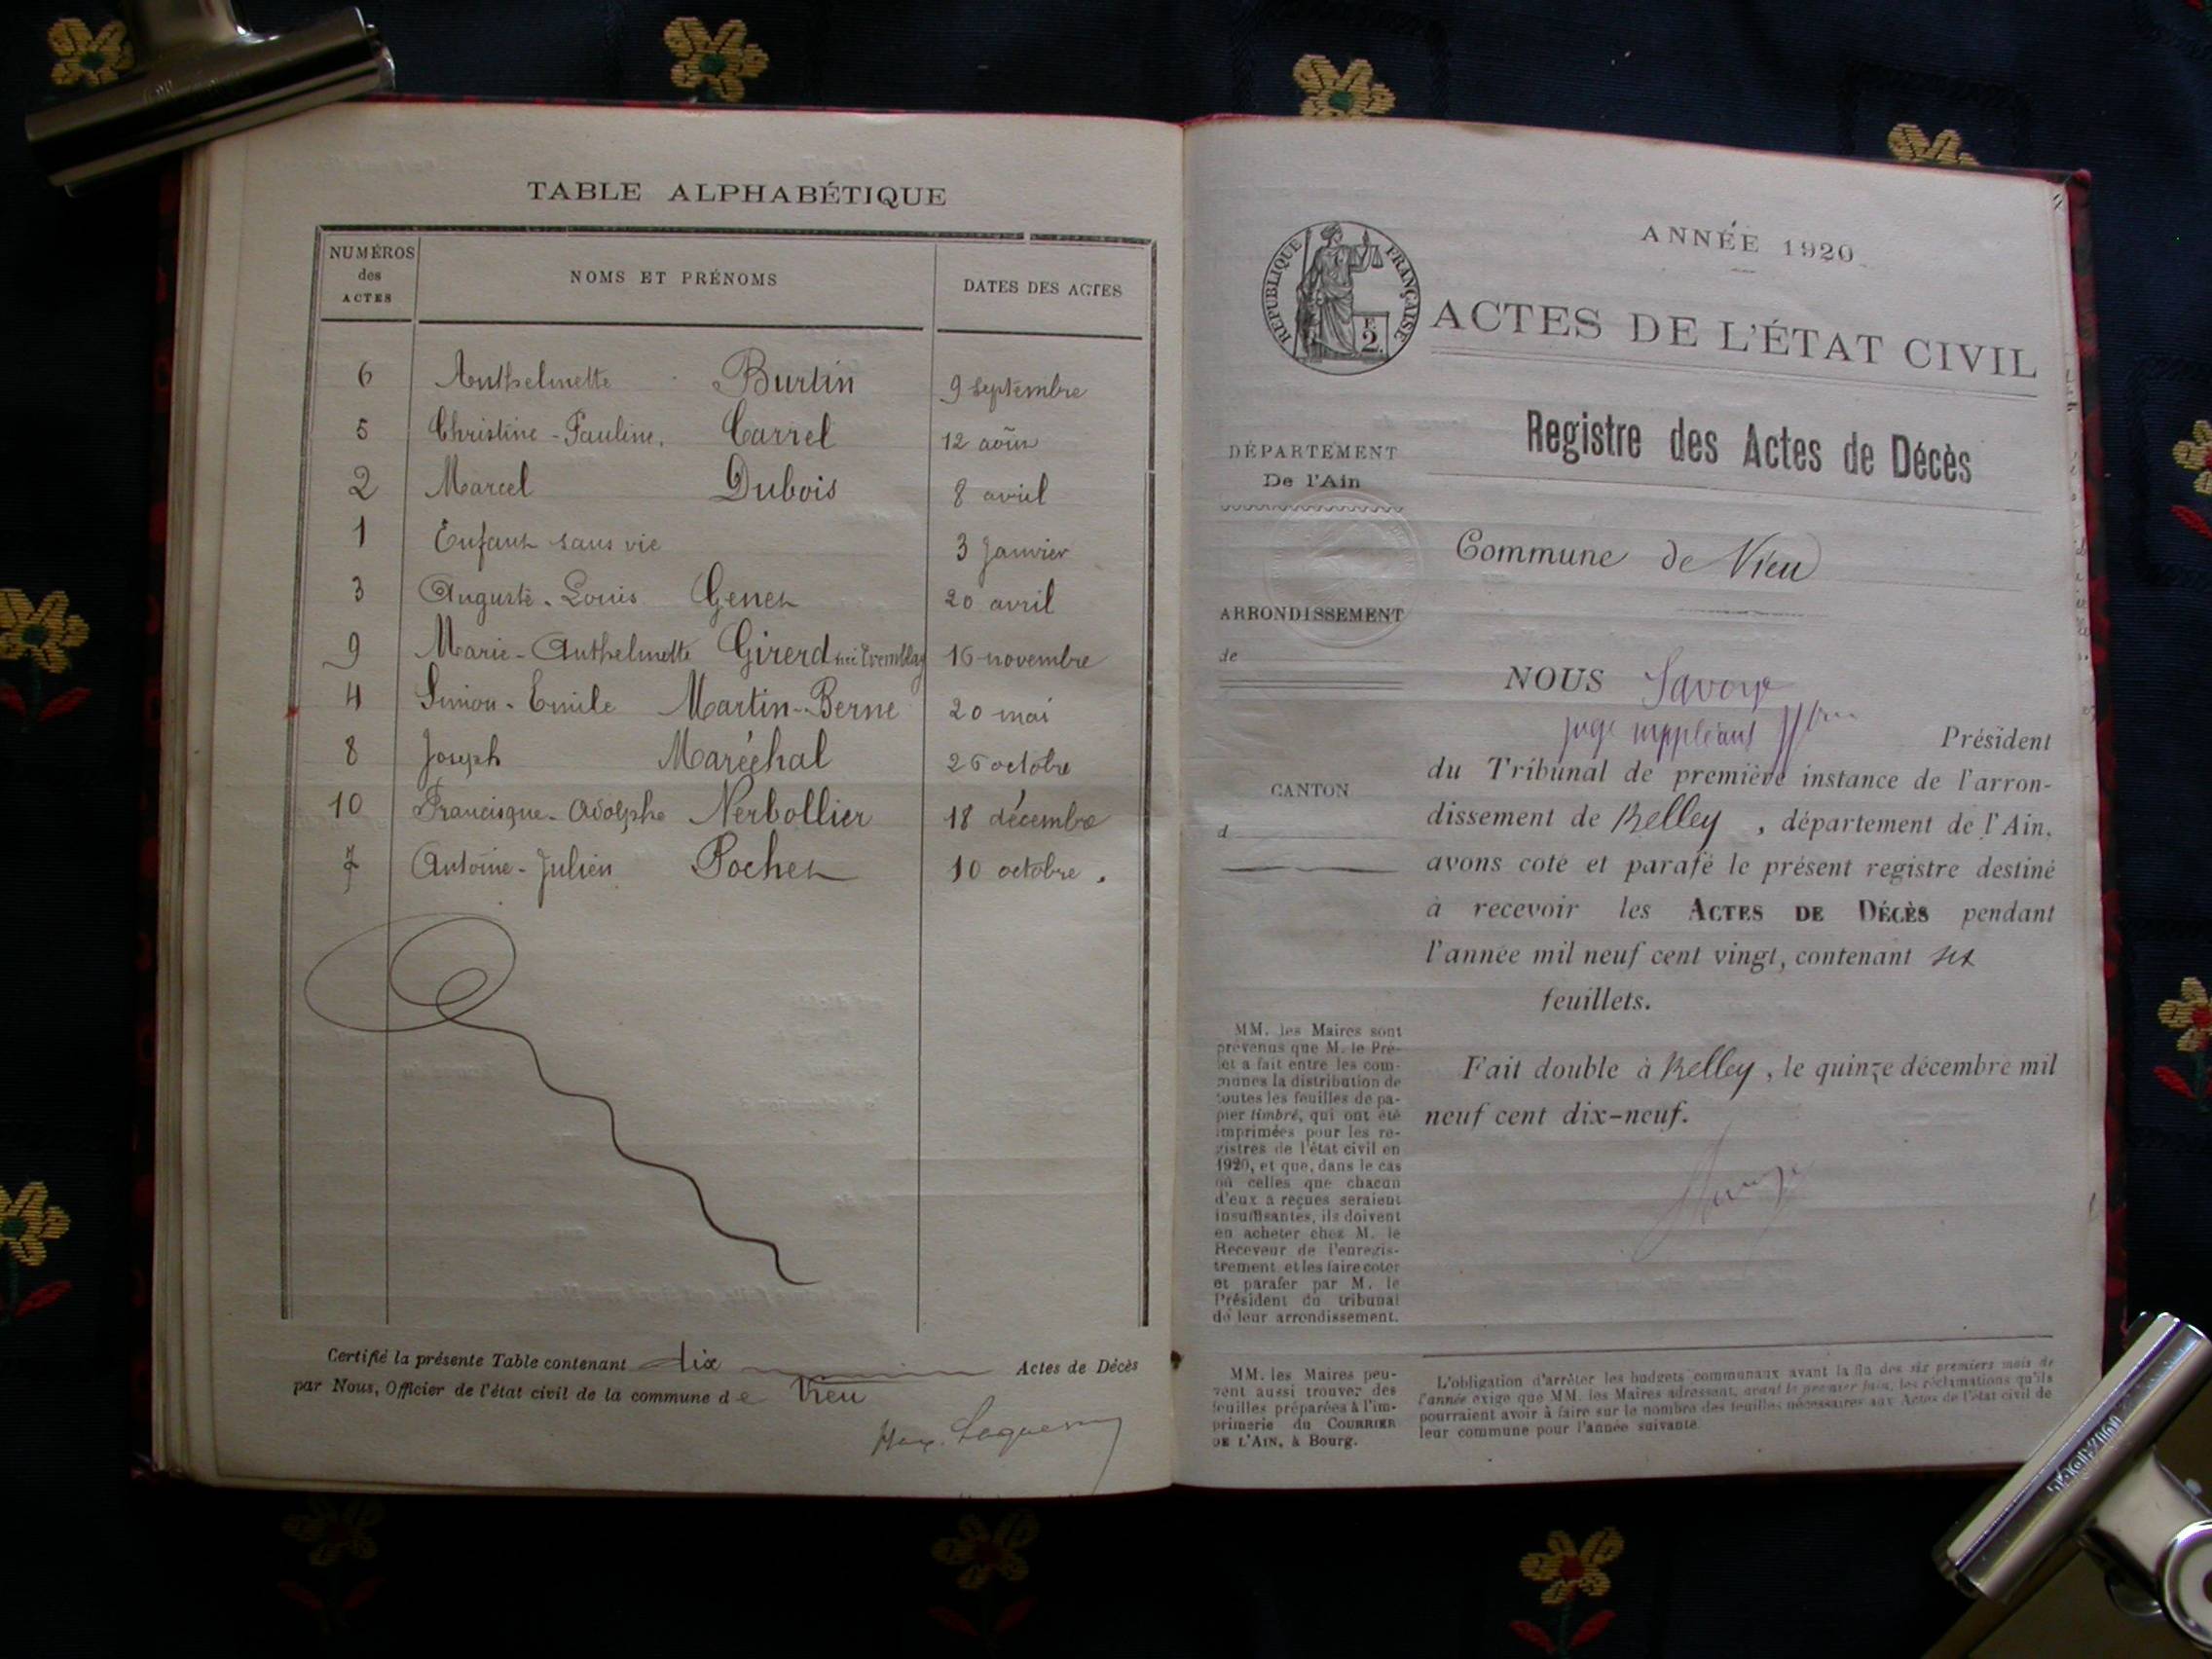 TABLE ALPHABÉTIQUE
NUMÉROS des ACTES
NOMS ET PRÉNOMS
DATES DES ACTES
6 Anthelmette Burtin 9 septembre
5 Christine-Pauline. Carrel 12 août
2 Marcel Dubois 8 avril
1 Enfant sans vie 3 Janvier
3 Auguste-Louis Genet 20 avril
9 Marie-Anthelmette Girerd née Tremblay 16 novembre
4 Simon-Emile Martin-Berne 20 mai
8 Joseph Maréchal 26 octobre
10 Francisque-Adolphe Nerbollier 18 décembre
7 Antoine-Julien Pochet 10 octobre.
Certifié la présente Table contenant dix Actes de Décès
par Nous, Officier de l'état civil de la commune de Vieu
ANNÉE 1920
RÉPUBLIQUE FRANÇAISE
2
ACTES DE L'ÉTAT CIVIL
Registre des Actes de Décès
DÉPARTEMENT
De l'Ain
Commune de Vieu
ARRONDISSEMENT
de
CANTON
d
NOUS Savoye
juge suppléant Président
du Tribunal de première instance de l'arron-
dissement de Belley, département de l'Ain,
avons coté et parafé le présent registre destiné
à recevoir les ACTES DE DÉCÈS pendant
l'année mil neuf cent vingt, contenant six
feuillets.
Fait double à Belley, le quinze décembre mil
neuf cent dix-neuf.
MM. les Maires sont
prévenus que M. le Pré-
fet a fait entre les com-
munes la distribution de
toutes les feuilles de pa-
pier timbré, qui ont été
imprimées pour les re-
gistres de l'état civil en
1920, et que, dans le cas
où celles que chacun
d'eux a reçues seraient
insuffisantes, ils doivent
en acheter chez M. le
Receveur de l'enregis-
trement et les faire coter
et parafer par M. le
Président du tribunal
de leur arrondissement.
MM. les Maires peu-
vent aussi trouver des
feuilles préparées à l'im-
primerie du COURRIER
DE L'AIN, à Bourg.
L'obligation d'arrêter les budgets communaux avant la fin des six premiers mois de
l'année exige que MM. les Maires adressent, avant le premier juin, les réclamations qu'ils
pourraient avoir à faire sur le nombre des feuilles nécessaires aux Actes de l'état civil de
leur commune pour l'année suivante.